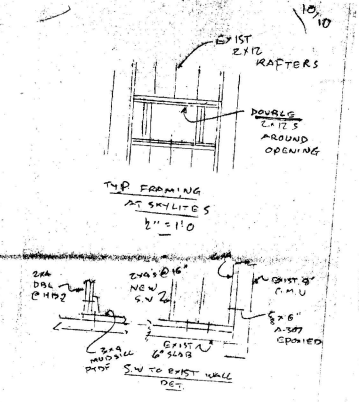 10,10
EXIST
2x12
RAFTERS
DOUBLE
2x12S
AROUND
OPENING
TYP. FRAMING
AT SKYLITES
½" = 1'0
2x4
DBL
@ HD2
2x4's @ 16"
NEW
S.W
EXIST. 8"
C.M.U
⅝ x 6"
A-307
EPOXIED
3x4
MUDSILL
PTDF
EXIST
6" SLAB
S.W TO EXIST WALL
DET.